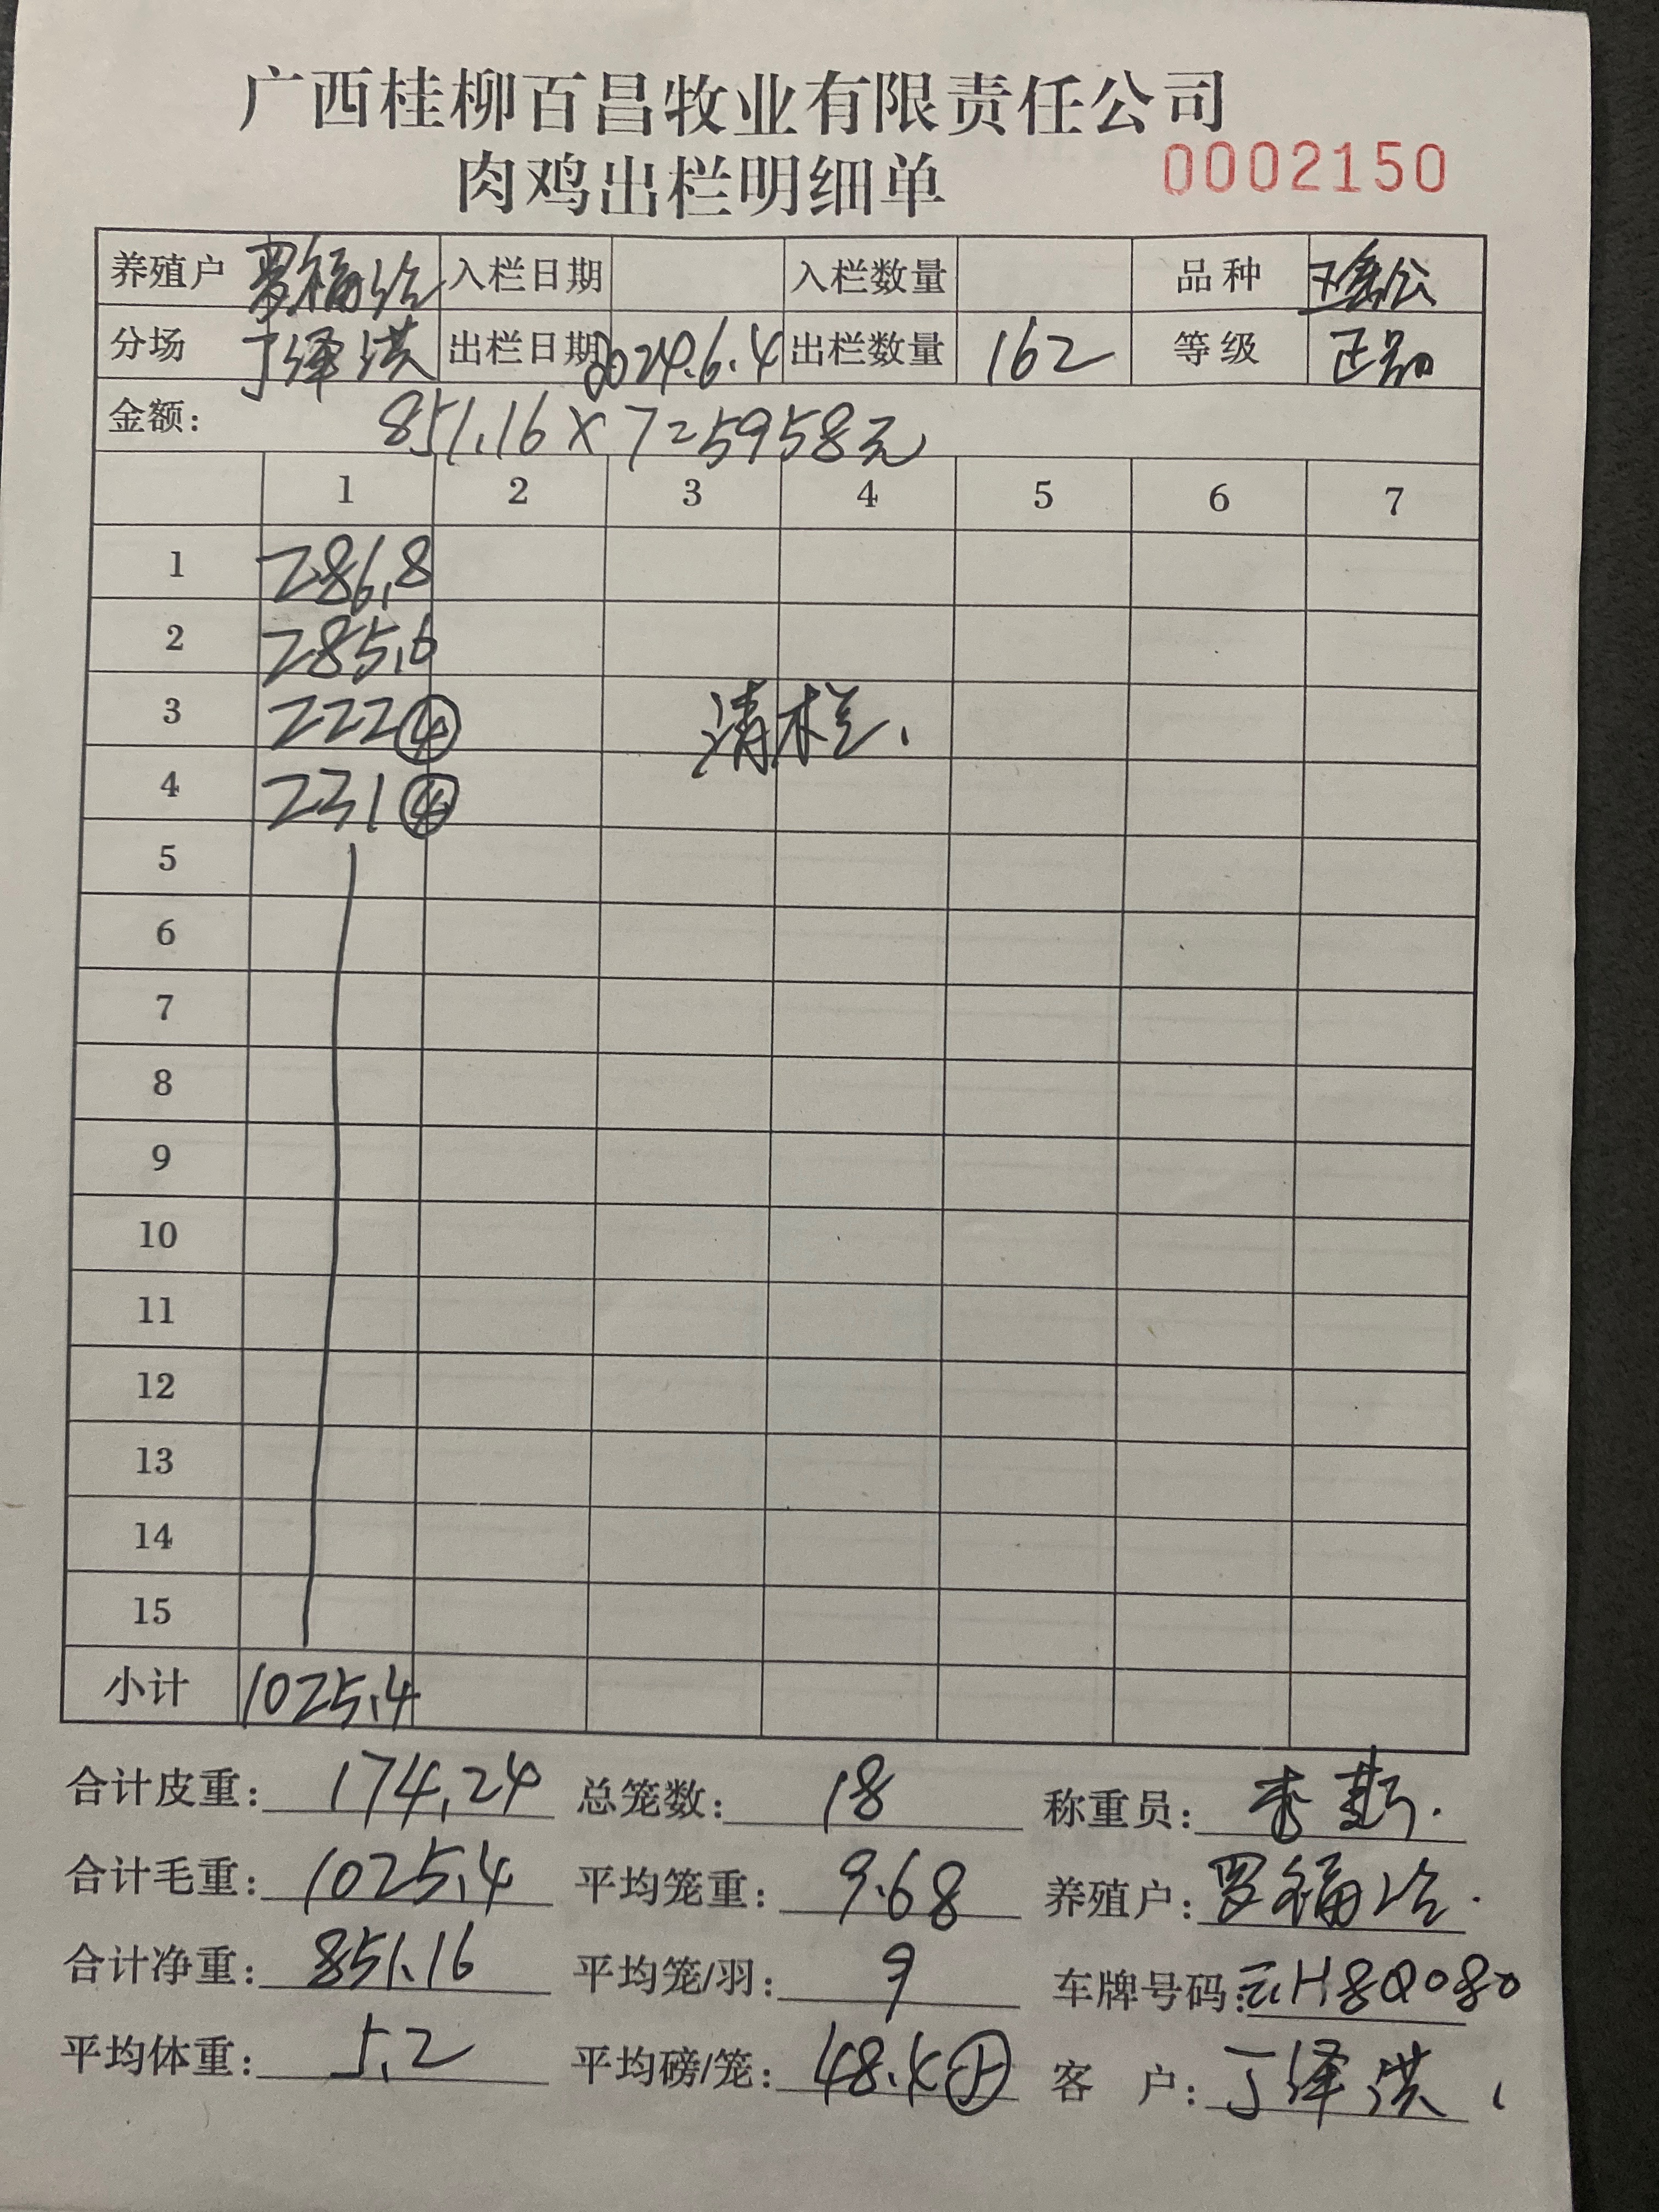 广西桂柳百昌牧业有限责任公司
肉鸡出栏明细单 0002150
养殖户 罗福 入栏日期 入栏数量 品种 公
分场 丁绎洪 出栏日期 2024.6.4 出栏数量 162 等级 正品
金额: 851.16×7=5958元
1 2 3 4 5 6 7
1 286.8
2 285.6
3 222④ 清栏、
4 231④
5
6
7
8
9
10
11
12
13
14
15
小计 1025.4
合计皮重: 174.24 总笼数: 18 称重员: 李
合计毛重: 1025.4 平均笼重: 9.68 养殖户: 罗福
合计净重: 851.16 平均笼/羽: 9 车牌号码: 云H8Q080
平均体重: 5.2 平均磅/笼: 48.4 客 户: 丁绎洪